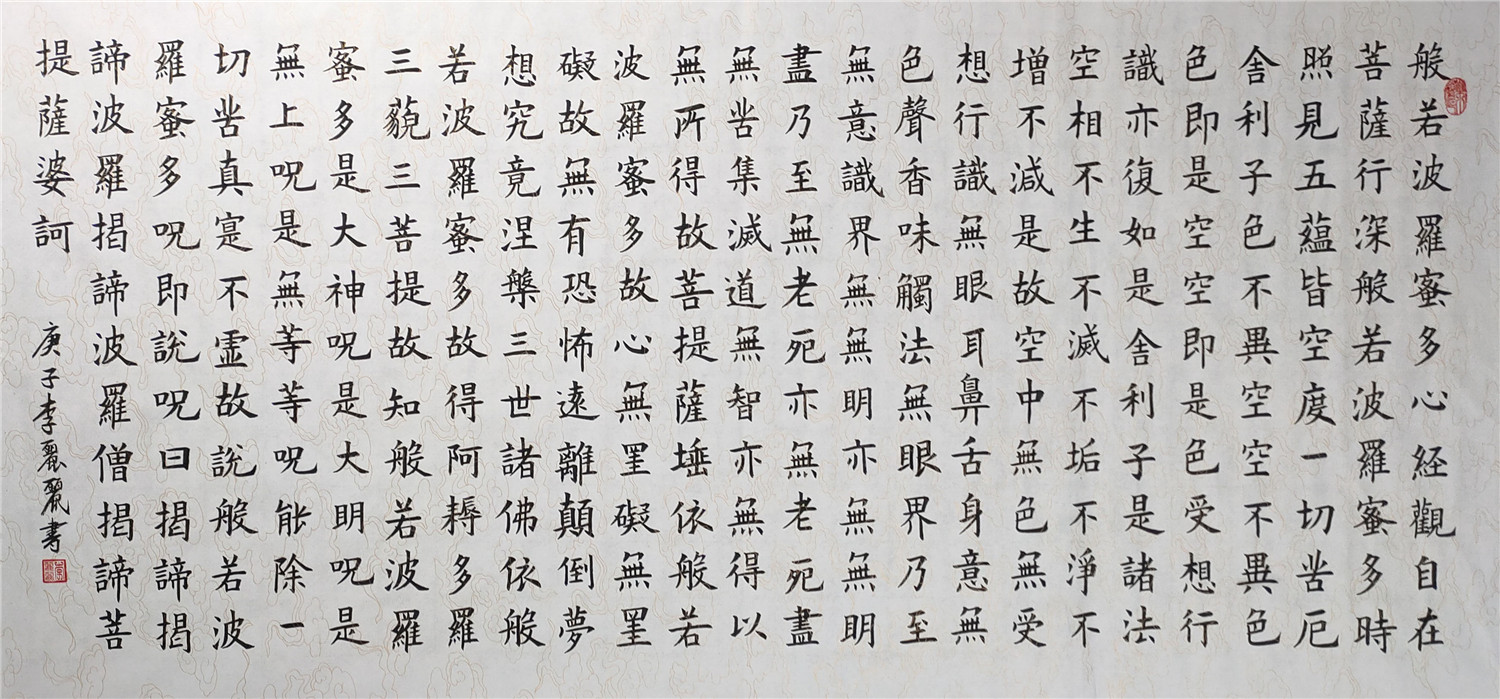 般若波羅蜜多心経觀自在
菩薩行深般若波羅蜜多時
照見五蘊皆空度一切苦厄
舎利子色不異空空不異色
色即是空空即是色受想行
識亦復如是舎利子是諸法
空相不生不滅不垢不淨不
增不減是故空中無色無受
想行識無眼耳鼻舌身意無
色聲香味觸法無眼界乃至
無意識界無無明亦無無明
盡乃至無老死亦無老死盡
無苦集滅道無智亦無得以
無所得故菩提薩埵依般若
波羅蜜多故心無罣礙無罣
礙故無有恐怖遠離顛倒夢
想究竟涅槃三世諸佛依般
若波羅蜜多故得阿耨多羅
三藐三菩提故知般若波羅
蜜多是大神呪是大明呪是
無上呪是無等等呪能除一
切苦真寔不虛故說般若波
羅蜜多呪即說呪曰揭諦揭
諦波羅揭諦波羅僧揭諦菩
提薩婆訶
庚子李麗麗書